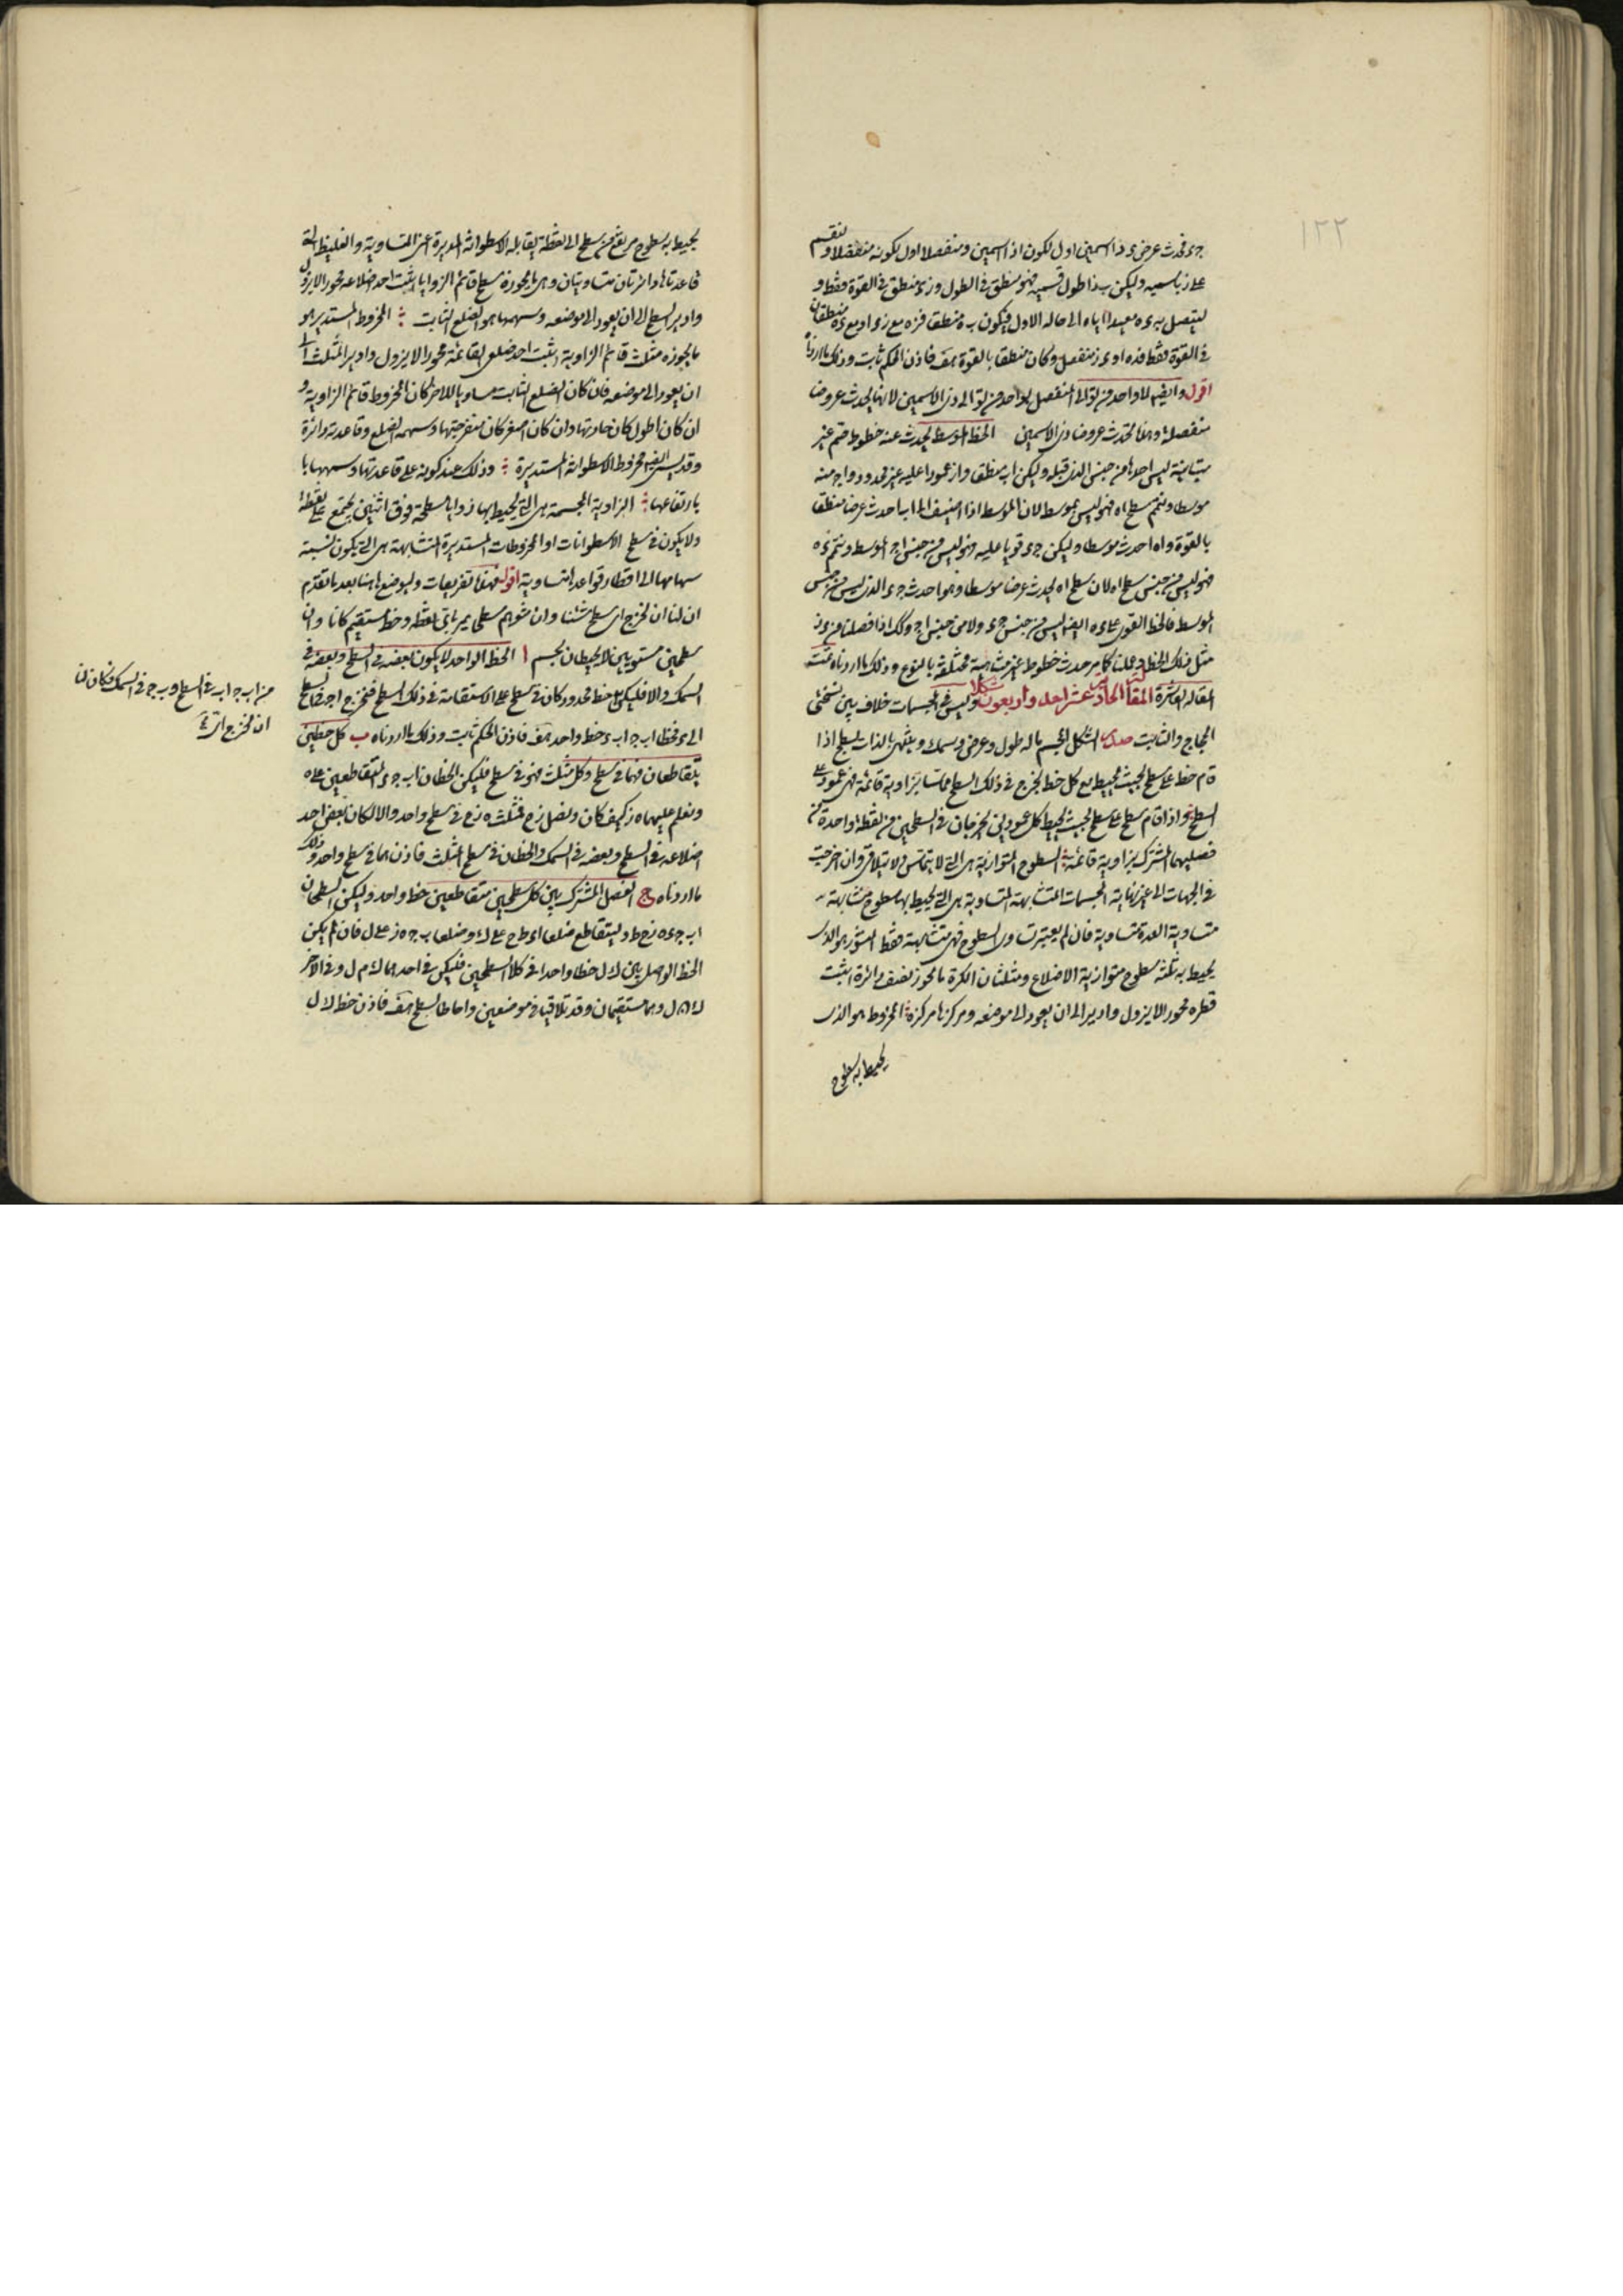 ١٢٢
جء فحدث عرض ء ذا اسمين اول لكون اذا اسمين ومنفصلا اول لكونه منفصلا ولنقسم
على ز باسميه وليكن ب ز اطول قسميه فهو منطق في الطول و زء منطق في القوة فقط و
ليتصل به ء ه معيدا اياه الى حاله الاول فيكون ب ه منطقا فزه مع زء او مع ء ه منطقان
في القوة فقط فذه او ء ز منفصل وكان منطقا بالقوة هف فاذن الحكم ثابت وذلك ما اردناه
اقول وايضا لا واحد من توالى المنفصل بواحد من توالى ذى الاسمين لانها يحدث عروضا
منفصلة وهذا يحدث عروضا ذى الاسمين الخط الموسط يحدث عنه خطوط صم غير
متباينة ليس احدها من جنس الذى قبله وليكن اب منطق و از عمودا عليه غير محدود و اج منه
موسطا ونتمم سطح اه فهو ليس بموسط لان الموسط اذا اضيف الى اب احدث عرضا منطقا
بالقوة و اه احدث موسطا وليكن جء قويا عليه فهو ليس من جنس اج الموسط ونتمم ء ه
فهو ليس من جنس سطح اه لان سطح اه يحدث عرضا موسطا وهو احدث جء الذى ليس من جنس
الموسط فالخط القوى على ء ه ايضا ليس من جنس جء ولا من جنس اج وكذلك اذا فصلنا من ء ز
مثل ذلك الخط وعملنا كما مر حدث خطوط غير متناهية مختلفة بالنوع وذلك ما اردناه تمت
المقالة العاشرة المقالة الحادية عشر احد واربعون شكلا وليس في المجسمات خلاف بين نسختى
الحجاج والثابت صدر الشكل المجسم ما له طول وعرض وسمك وينتهى بالذات بسطح اذا
قام خط على سطح بحيث يحيط مع كل خط يخرج في ذلك السطح مماسا بزاوية قائمة فهو عمود على
السطح واذا قام سطح على سطح بحيث يحيط كل عمودين يخرجان في السطحين من نقطة واحدة من
فصليهما المشترك بزاوية قائمة السطوح المتوازية هى التى لا يتماس ولا يتلاقى وان اخرجت
في الجهات الى غير نهاية المجسمات المتشابهة المتساوية هى التى يحيط بها سطوح متشابهة
متساوية العدة متساوية فان لم يعتبر تساوى السطوح فهى متشابهة فقط المنشور هو الذى
يحيط به ثلثة سطوح متوازية الاضلاع ومثلثان الكرة ما يحوزه نصف دائرة اثبت
قطره محورا لا يزول وادير الى ان يعود الى موضعه ومركزها مركزه المخروط هو الذى
يحيط به سطوح
يحيط به سطوح مرتفعة من سطح الى نقطة يقابله الاسطوانة المديرة اعنى المتساوية والغليظ التى
قاعدتاها دائرتان متساويتان وهى ما يحوزه سطح قائم الزوايا اثبت احد اضلاعه محورا لا يزول
وادير السطح الى ان يعود الى موضعه وسهمها هو الضلع الثابت المخروط المستدير هو
ما يحوزه مثلث قائم الزاوية اثبت احد ضلعى القائمة محورا لا يزول وادير المثلث الى
ان يعود الى موضعه فان كان الضلع الثابت مساويا للاخر كان المخروط قائم الزاوية و
ان كان اطول كان حادتها وان كان اصغر كان منفرجتها وسهمه الضلع وقاعدته دائرة
وقد يسمى ايضا مخروط الاسطوانة المستديرة وذلك عند كونه على قاعدتها وسهمها با
بارتفاعها الزاوية المجسمة هى التى يحيط بها زوايا مسطحة فوق اثنتين يجتمع على نقطة
ولا يكون في سطح الاسطوانات او المخروطات المستديرة المتشابهة هى التى يكون نسبة
سهامها الى اقطار قواعدها متساوية اقول فهذه تعريفات وليوضع ههنا بعد ما تقدم
ان لنا ان نخرج اى سطح شئنا وان نتوهم سطحا يمر باى نقطة وخط مستقيم كانا وان
سطحين مستويين لا يحيطان بجسم ا الخط الواحد لا يكون بعضه في السطح وبعضه في
السمك والا فليكن خط محدود كان في سطح على الاستقامة في ذلك السطح فنخرج اب في السطح
الى ء فخطا اب ج اب ء خط واحد هف فاذن الحكم ثابت وذلك ما اردناه ب كل خطين
يتقاطعان فهما في سطح وكل مثلث فهو في سطح فليكن الخطان اب جء المتقاطعين على ه
ونعلم عليهما ه ز كيف كان ونصل زح فمثلث ه زح في سطح واحد والا لكان بعض احد
اضلاعه في السطح وبعضه في السمك والخطان في سطح المثلث فاذن هما في سطح واحد وذلك
ما اردناه ج الفصل المشترك بين كل سطحين متقاطعين خط واحد وليكن السطحان
اب جء ه زح ط وليتقاطع ضلعا اء ط ح على ك وضلعا ب ج ه ز على ل فان لم يكن
الخط الواصل بين ك ل خطا واحدا في كلا السطحين فليكن في احدهما ك م ل وفي الاخر
ك ن ل وهما مستقيمان وقد تلاقيا في موضعين واحاطا بسطح هف فاذن خط ك ل
من اب ج اب في السطح و ب ج في السمك فكان لنا
ان نخرج